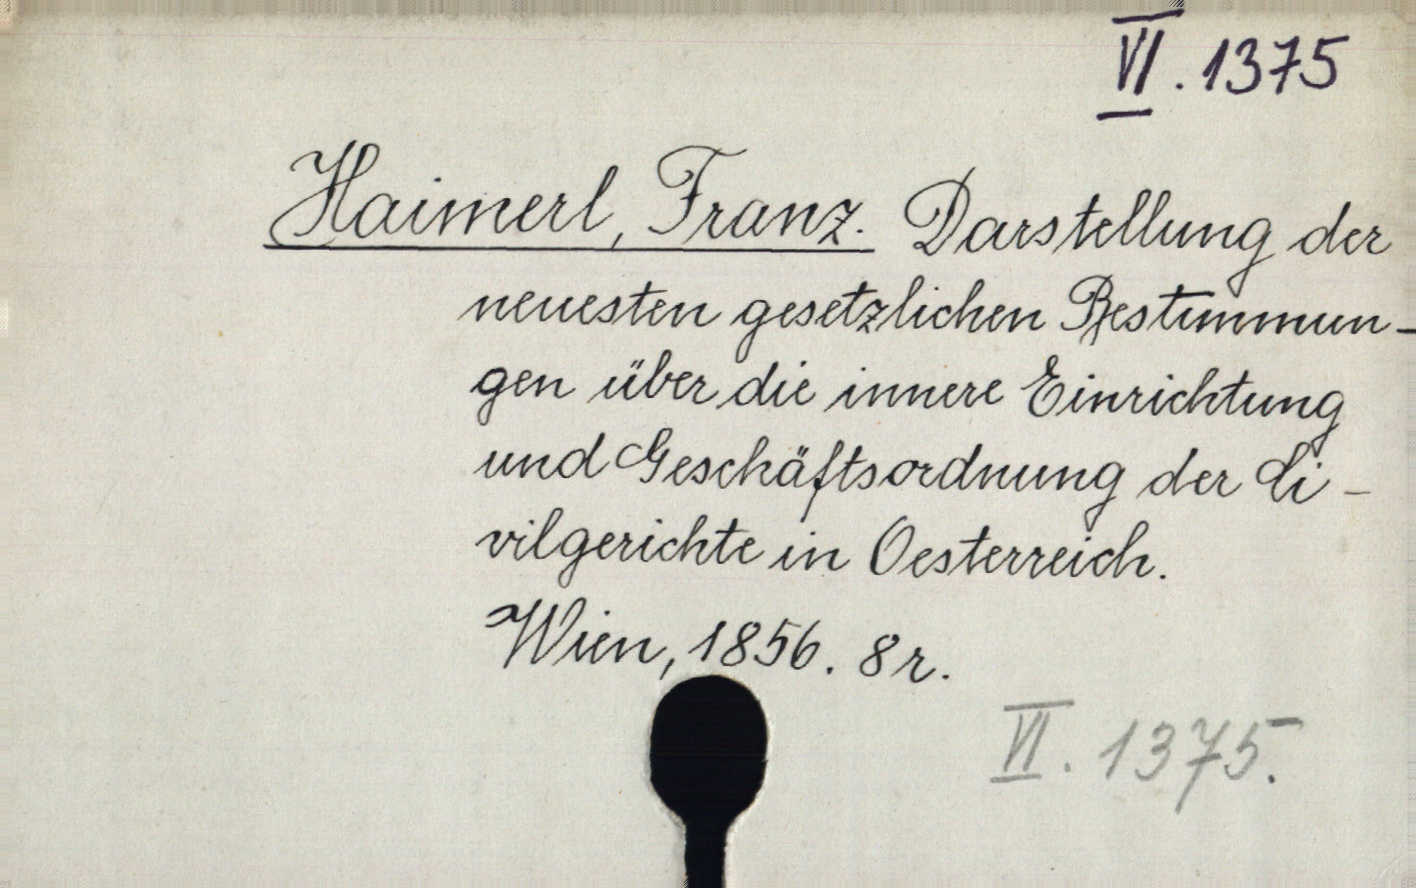 VI. 1375
Haimerl, Franz. Darstellung der
neuesten gesetzlichen Bestimmun-
gen über die innere Einrichtung
und Geschäftsordnung der Ci-
vilgerichte in Oesterreich.
Wien, 1856. 8r.
VI. 1375.